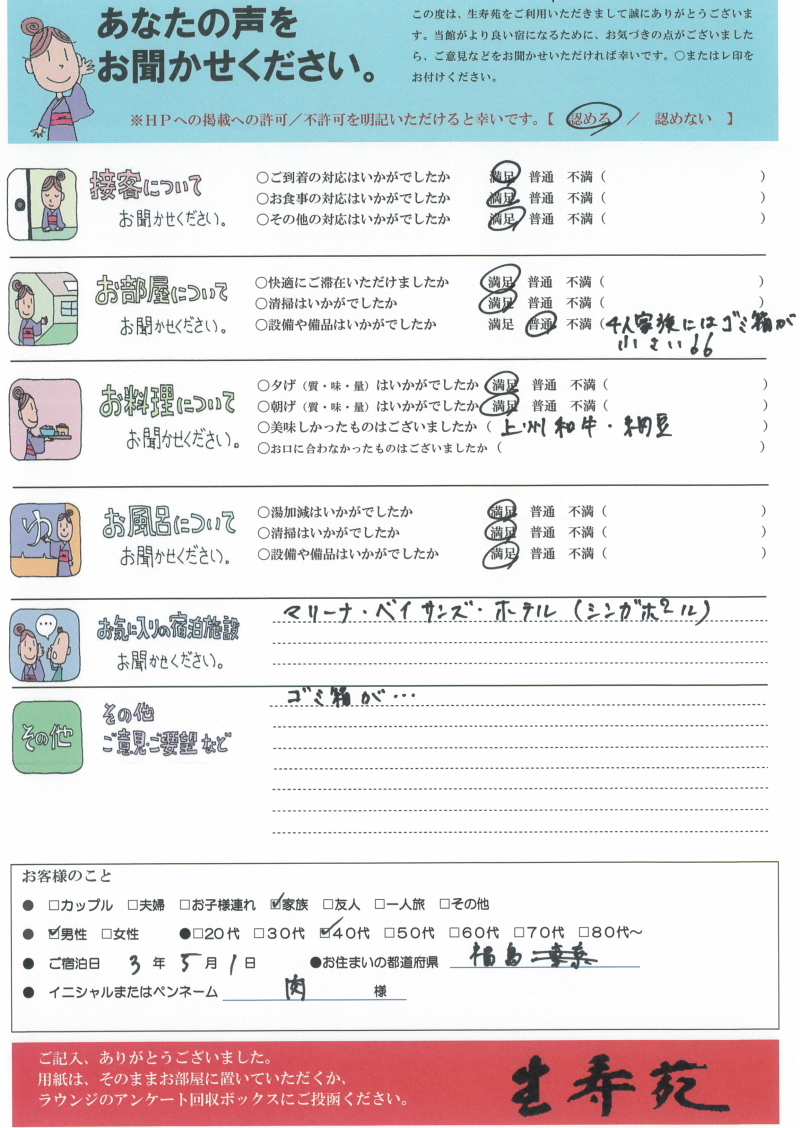 あなたの声を
お聞かせください。
この度は、生寿苑をご利用いただきまして誠にありがとうございま
す。当館がより良い宿になるために、お気づきの点がございました
ら、ご意見などをお聞かせいただければ幸いです。○またはレ印を
お付けください。
※HPへの掲載への許可／不許可を明記いただけると幸いです。【 認める ／ 認めない 】
接客について
お聞かせください。
○ご到着の対応はいかがでしたか 満足 普通 不満（ ）
○お食事の対応はいかがでしたか 満足 普通 不満（ ）
○その他の対応はいかがでしたか 満足 普通 不満（ ）
お部屋について
お聞かせください。
○快適にご滞在いただけましたか 満足 普通 不満（ ）
○清掃はいかがでしたか 満足 普通 不満（ ）
○設備や備品はいかがでしたか 満足 普通 不満（4人家族にはゴミ箱が
小さい
お料理について
お聞かせください。
○夕げ（質・味・量）はいかがでしたか 満足 普通 不満（ ）
○朝げ（質・味・量）はいかがでしたか 満足 普通 不満（ ）
○美味しかったものはございましたか（ 上州和牛・納豆 ）
○お口に合わなかったものはございましたか（ ）
ゆ
お風呂について
お聞かせください。
○湯加減はいかがでしたか 満足 普通 不満（ ）
○清掃はいかがでしたか 満足 普通 不満（ ）
○設備や備品はいかがでしたか 満足 普通 不満（ ）
お気に入りの宿泊施設
お聞かせください。
マリーナ・ベイサンズ・ホテル（シンガポール）
その他
その他
ご意見・ご要望など
ゴミ箱が…
お客様のこと
● □カップル □夫婦 □お子様連れ ☑家族 □友人 □一人旅 □その他
● ☑男性 □女性 ●□20代 □30代 ☑40代 □50代 □60代 □70代 □80代〜
● ご宿泊日 3 年 5 月 1 日 ●お住まいの都道府県 福島
● イニシャルまたはペンネーム 肉 様
ご記入、ありがとうございました。
用紙は、そのままお部屋に置いていただくか、
ラウンジのアンケート回収ボックスにご投函ください。
生寿苑